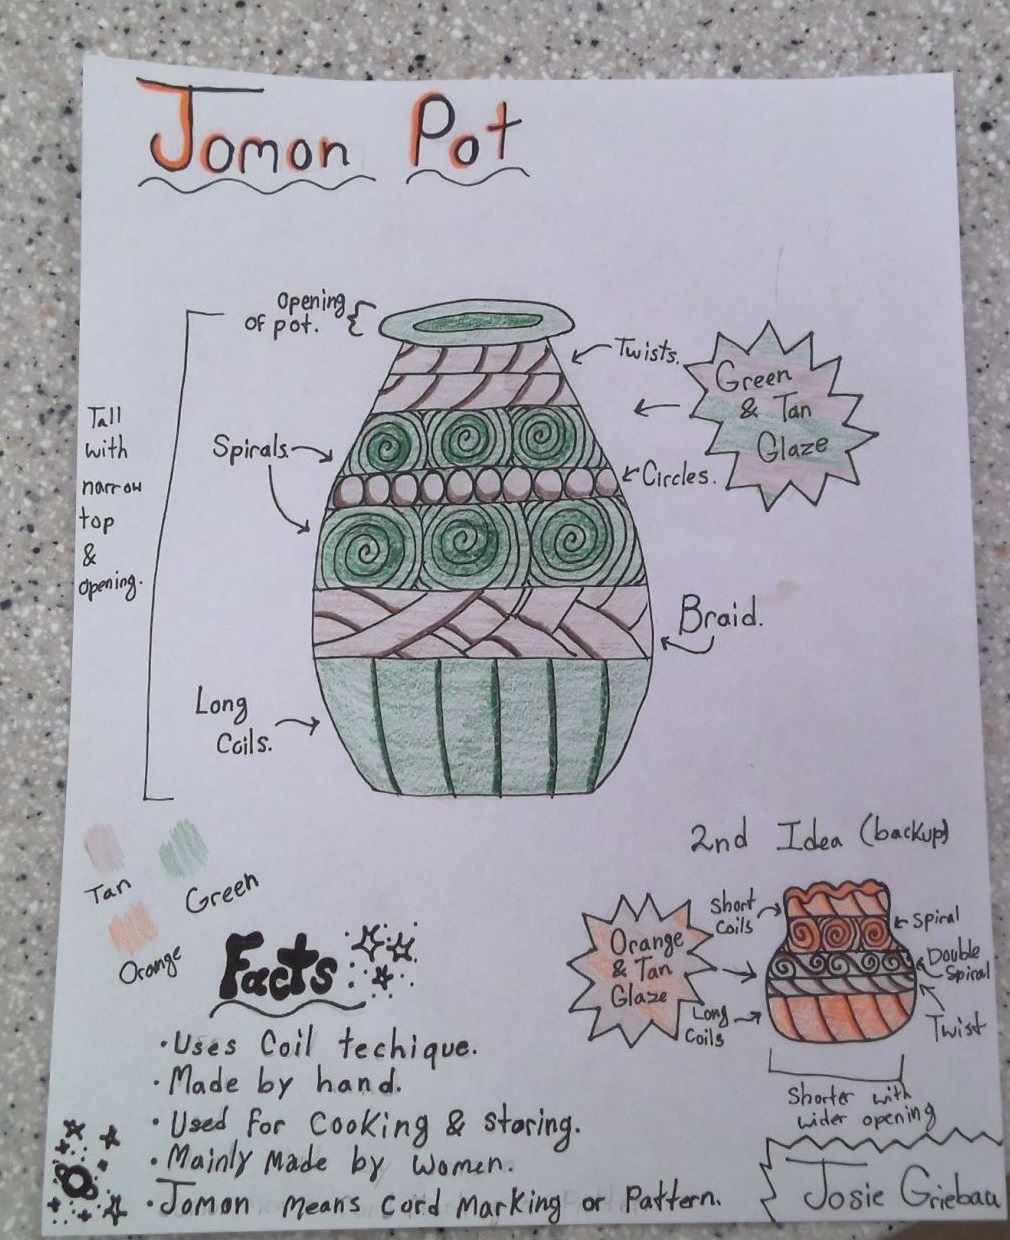 Jomon Pot
opening
of pot.
Twists.
Green
& Tan
Glaze
Tall
with
narrow
top
&
opening.
Spirals
Circles.
Braid.
Long
Coils.
Tan
Green
Orange
2nd Idea (backup)
Short
Coils
Spiral
Double
Spiral
Orange
& Tan
Glaze
Long
Coils
Twist
Shorter with
wider opening
Facts
•Uses Coil techique.
•Made by hand.
•Used for Cooking & Storing.
•Mainly Made by Women.
•Jomon means Cord Marking or Pattern.
Josie